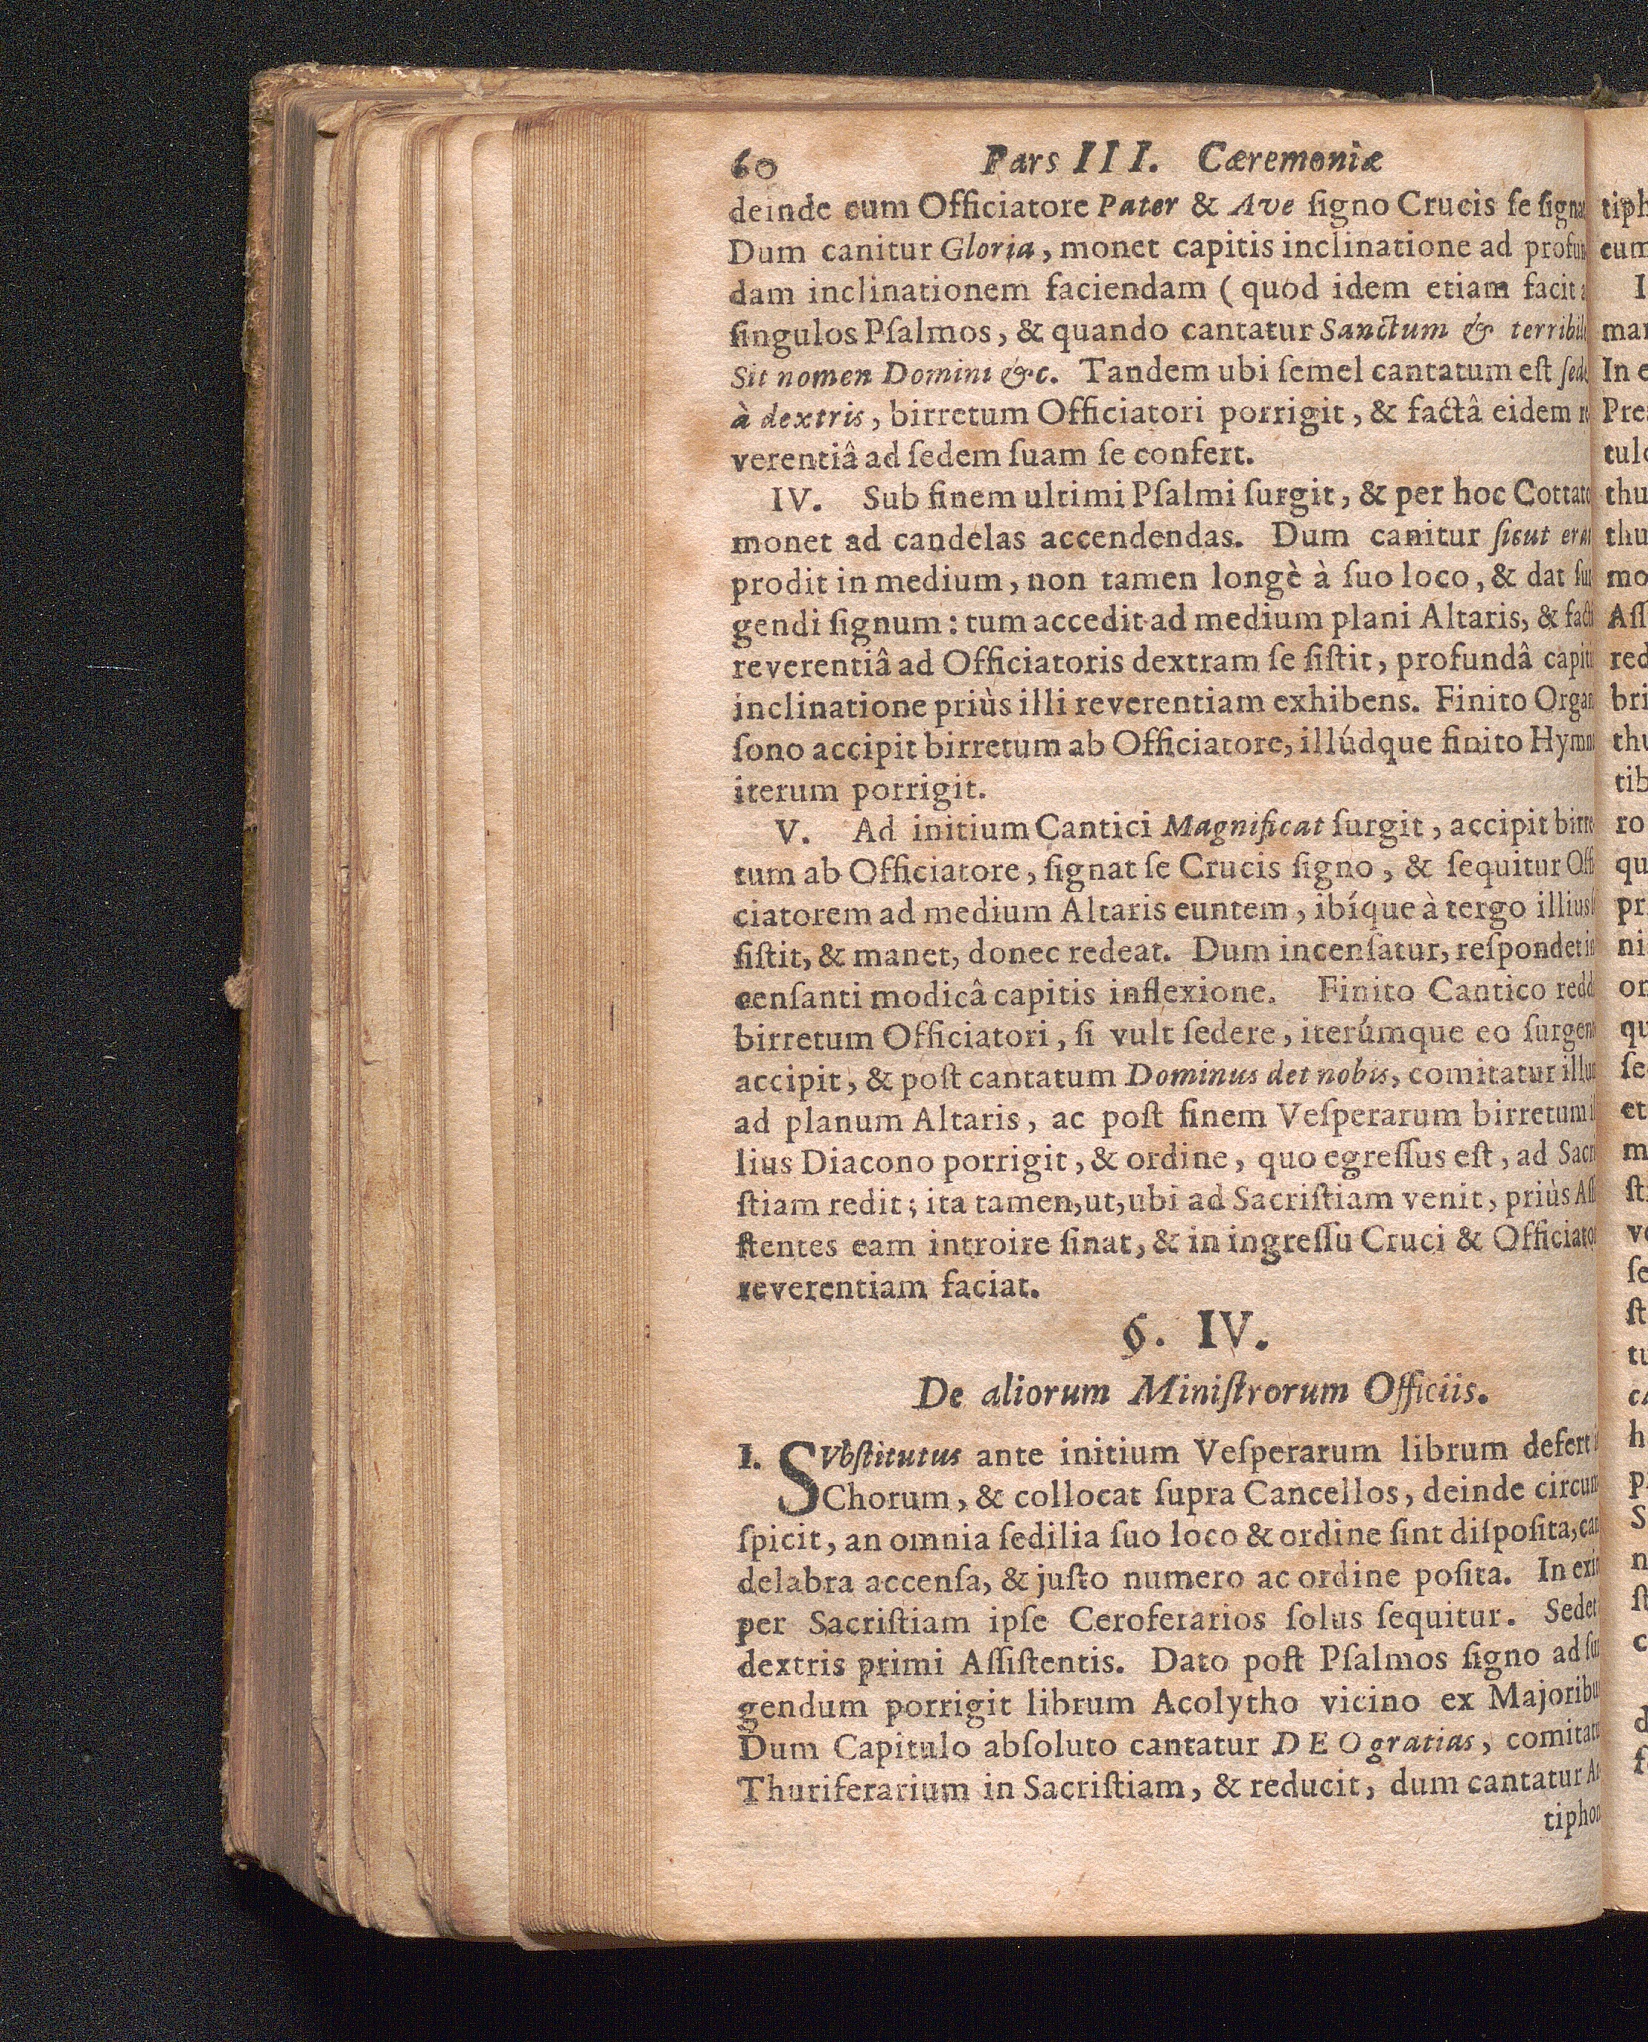 60 Pars III. Cæremoniæ
deinde cum Officiatore Pater & Ave ſigno Crucis ſe ſigna
Dum canitur Gloria, monet capitis inclinatione ad profun
dam inclinationem faciendam (quod idem etiam facit
ſingulos Pſalmos, & quando cantatur Sanctum & terribile
Sit nomen Domini &c. Tandem ubi ſemel cantatum eſt ſede
à dextris, birretum Officiatori porrigit, & factâ eidem re
verentiâ ad ſedem ſuam ſe confert.
IV. Sub finem ultimi Pſalmi ſurgit, & per hoc Cottato
monet ad candelas accendendas. Dum canitur ſicut erat
prodit in medium, non tamen longè à ſuo loco, & dat ſur
gendi ſignum: tum accedit ad medium plani Altaris, & factâ
reverentiâ ad Officiatoris dextram ſe ſiſtit, profundâ capitis
inclinatione priùs illi reverentiam exhibens. Finito Organi
ſono accipit birretum ab Officiatore, illúdque finito Hymno
iterum porrigit.
V. Ad initium Cantici Magnificat ſurgit, accipit birre
tum ab Officiatore, ſignat ſe Crucis ſigno, & ſequitur Offi
ciatorem ad medium Altaris euntem, ibíque à tergo illius
ſiſtit, & manet, donec redeat. Dum incenſatur, reſpondet in
cenſanti modicâ capitis inflexione. Finito Cantico redd
birretum Officiatori, ſi vult ſedere, iterúmque eo ſurgen
accipit, & poſt cantatum Dominus det nobis, comitatur illum
ad planum Altaris, ac poſt finem Veſperarum birretum il
lius Diacono porrigit, & ordine, quo egreſſus eſt, ad Sacri
ſtiam redit; ita tamen, ut, ubi ad Sacriſtiam venit, priùs Aſſi
ſtentes eam introire ſinat, & in ingreſſu Cruci & Officiatori
reverentiam faciat.
§. IV.
De aliorum Miniſtrorum Officiis.
I. SVbſtitutus ante initium Veſperarum librum defert
Chorum, & collocat ſupra Cancellos, deinde circum
ſpicit, an omnia ſedilia ſuo loco & ordine ſint diſpoſita, can
delabra accenſa, & juſto numero ac ordine poſita. In exitu
per Sacriſtiam ipſe Ceroferarios ſolus ſequitur. Sedet
dextris primi Aſſiſtentis. Dato poſt Pſalmos ſigno ad ſur
gendum porrigit librum Acolytho vicino ex Majoribus
Dum Capitulo abſoluto cantatur DEO gratias, comitatur
Thuriferarium in Sacriſtiam, & reducit, dum cantatur An
tiphon